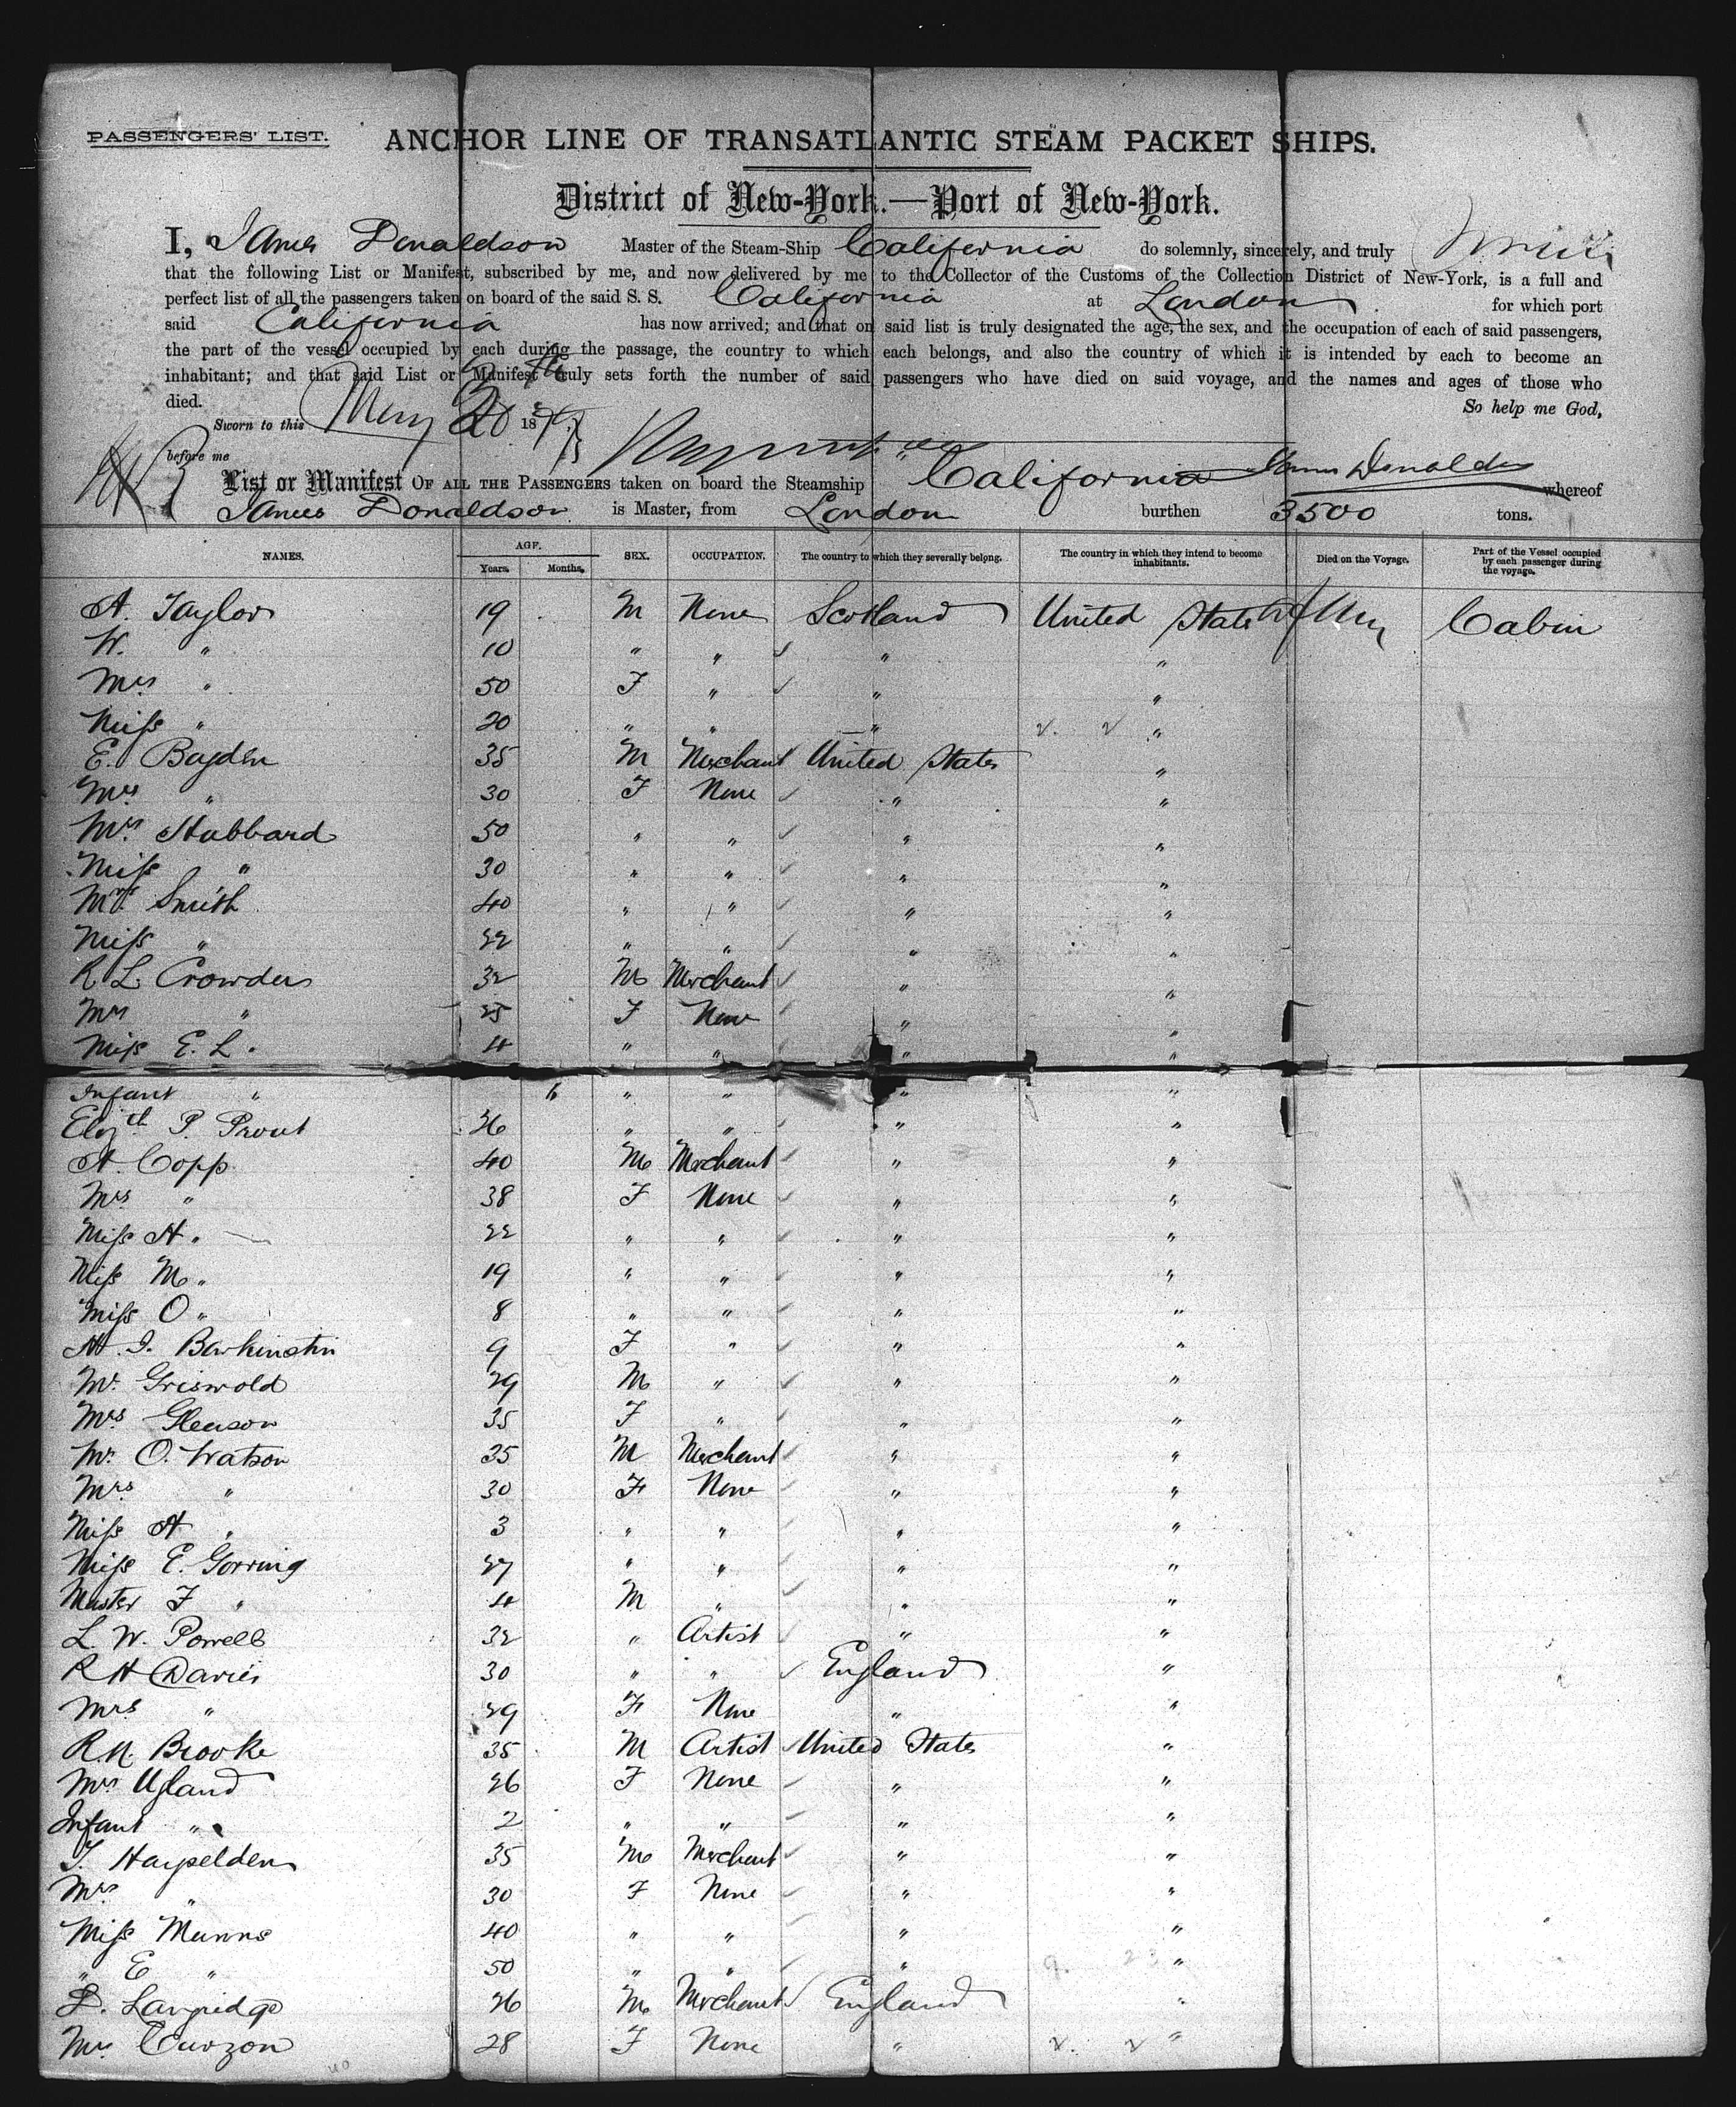 PASSENGERS' LIST.
ANCHOR LINE OF TRANSATLANTIC STEAM PACKET SHIPS.
District of New-York.—Port of New-York.
I, James Donaldson Master of the Steam-Ship California do solemnly, sincerely, and truly
that the following List or Manifest, subscribed by me, and now delivered by me to the Collector of the Customs of the Collection District of New-York, is a full and
perfect list of all the passengers taken on board of the said S. S. California at London for which port
said California has now arrived; and that on said list is truly designated the age, the sex, and the occupation of each of said passengers,
the part of the vessel occupied by each during the passage, the country to which each belongs, and also the country of which it is intended by each to become an
inhabitant; and that said List or Manifest truly sets forth the number of said passengers who have died on said voyage, and the names and ages of those who
died. So help me God,
Sworn to this May 20th 187
before me James Donaldson
List or Manifest OF ALL THE PASSENGERS taken on board the Steamship California whereof
James Donaldson is Master, from London burthen 3500 tons.
NAMES. AGE. Years. Months. SEX. OCCUPATION. The country to which they severally belong. The country in which they intend to become inhabitants. Died on the Voyage. Part of the Vessel occupied by each passenger during the voyage.
A. Taylor 19 M None Scotland United States of Cabin
W. " 10 " " " "
Mrs " 50 F " " "
Miss " 20 " " " "
E. Bayden 35 M Merchant United States "
Mrs " 30 F None " "
Mrs Hubbard 50 " " " "
Miss " 30 " " " "
Mrs Smith 40 " " " "
Miss " 22 " " " "
R L Crowders 32 M Merchant " "
Mrs " 25 F None " "
Miss E. L. " 4 " " " "
Infant " 6 " " " "
Elizth P. Prout 36 " " " "
A. Copp 40 M Merchant " "
Mrs " 38 F None " "
Miss A. " 22 " " " "
Miss M. " 19 " " " "
Miss O " 8 " " " "
9 F " " "
Mr. Griswold 29 M " " "
Mrs Gleason 35 F " " "
Mr. O. Watson 35 M Merchant " "
Mrs " 30 F None " "
Miss A " 3 " " " "
Miss E. Gorring 27 " " " "
Master F " 4 M " " "
L. W. Powell 32 " Artist " "
R H Davies 30 " " England "
Mrs " 29 F None " "
R. N. Brooke 35 M Artist United States "
Mrs Ugland 26 F None " "
Infant " 2 " " " "
T. Haypelden 35 M Merchant " "
Mrs " 30 F None " "
Miss Munns 40 " " " "
" E " 50 " " " "
26 M Merchant England "
Mrs Curzon 28 F None " "